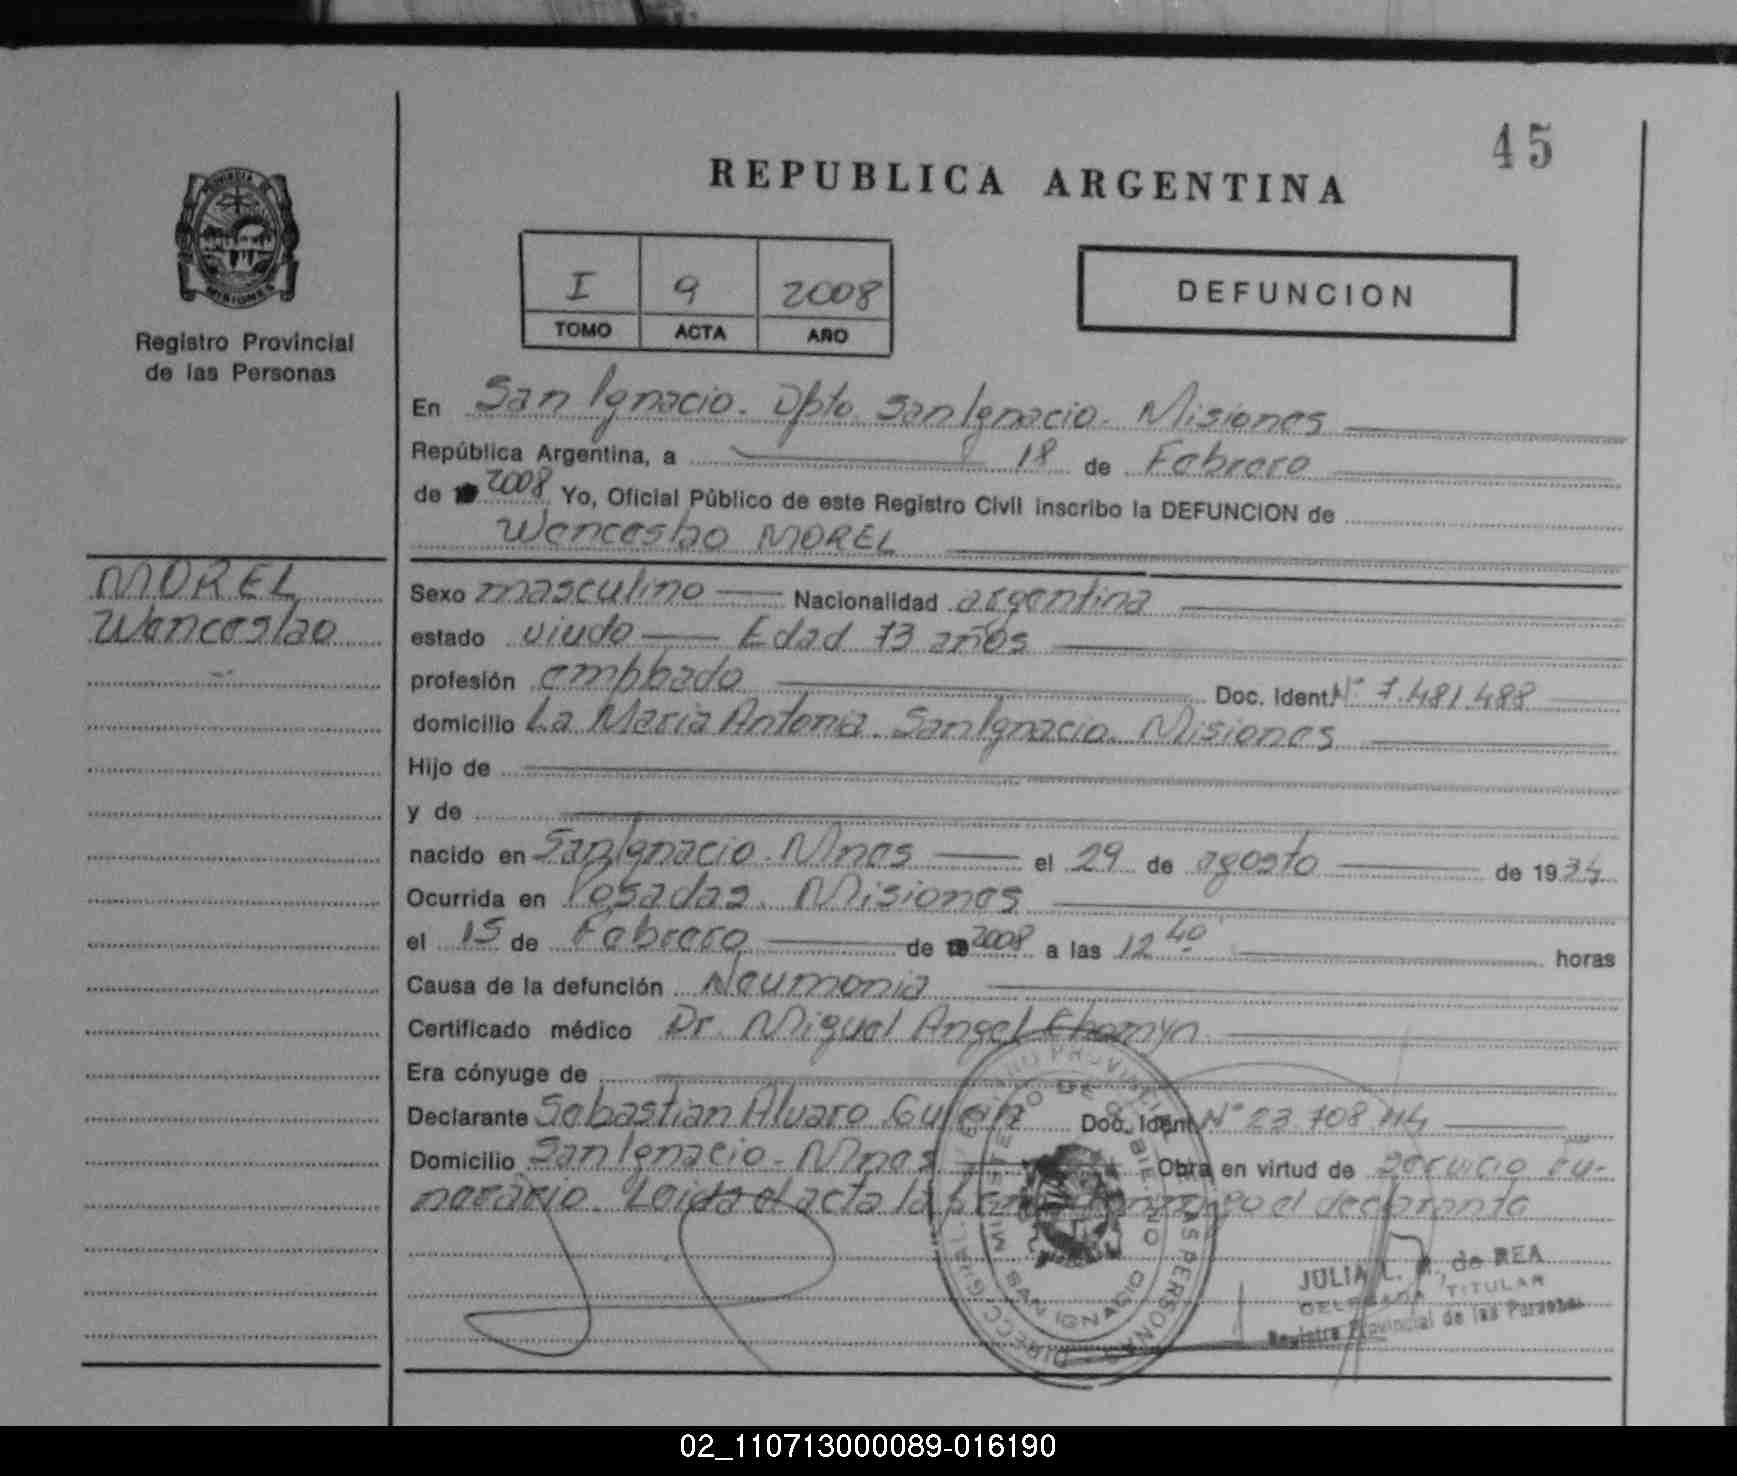 45
REPUBLICA ARGENTINA
PROVINCIA DE
MISIONES
Registro Provincial
de las Personas
I 9 2008
TOMO ACTA AÑO
DEFUNCION
En San Ignacio. Dpto San Ignacio. Misiones
República Argentina, a 18 de Febrero
de 2008 Yo, Oficial Público de este Registro Civil inscribo la DEFUNCION de
Wenceslao MOREL
MOREL
Wenceslao
Sexo masculino Nacionalidad argentina
estado viudo Edad 73 años
profesión empleado Doc. Ident. Nº 7.481.488
domicilio La Maria Antonia. San Ignacio. Misiones
Hijo de
y de
nacido en San Ignacio. Mnes el 29 de agosto de 1934
Ocurrida en Posadas. Misiones
el 15 de Febrero de 2008 a las 12 40 horas
Causa de la defunción Neumonia
Certificado médico Dr. Miguel Angel
Era cónyuge de
Declarante Sebastian Alvaro Doc. Ident. Nº 23.708
Domicilio San Ignacio. Mnes Obra en virtud de servicio fu-
nerario. Leida el acta la el declarante
MINISTERIO DE GOBIERNO
SAN IGNACIO
JULIA L. de REA
DELEGADA TITULAR
Registro Provincial de las Personas
02_110713000089-016190